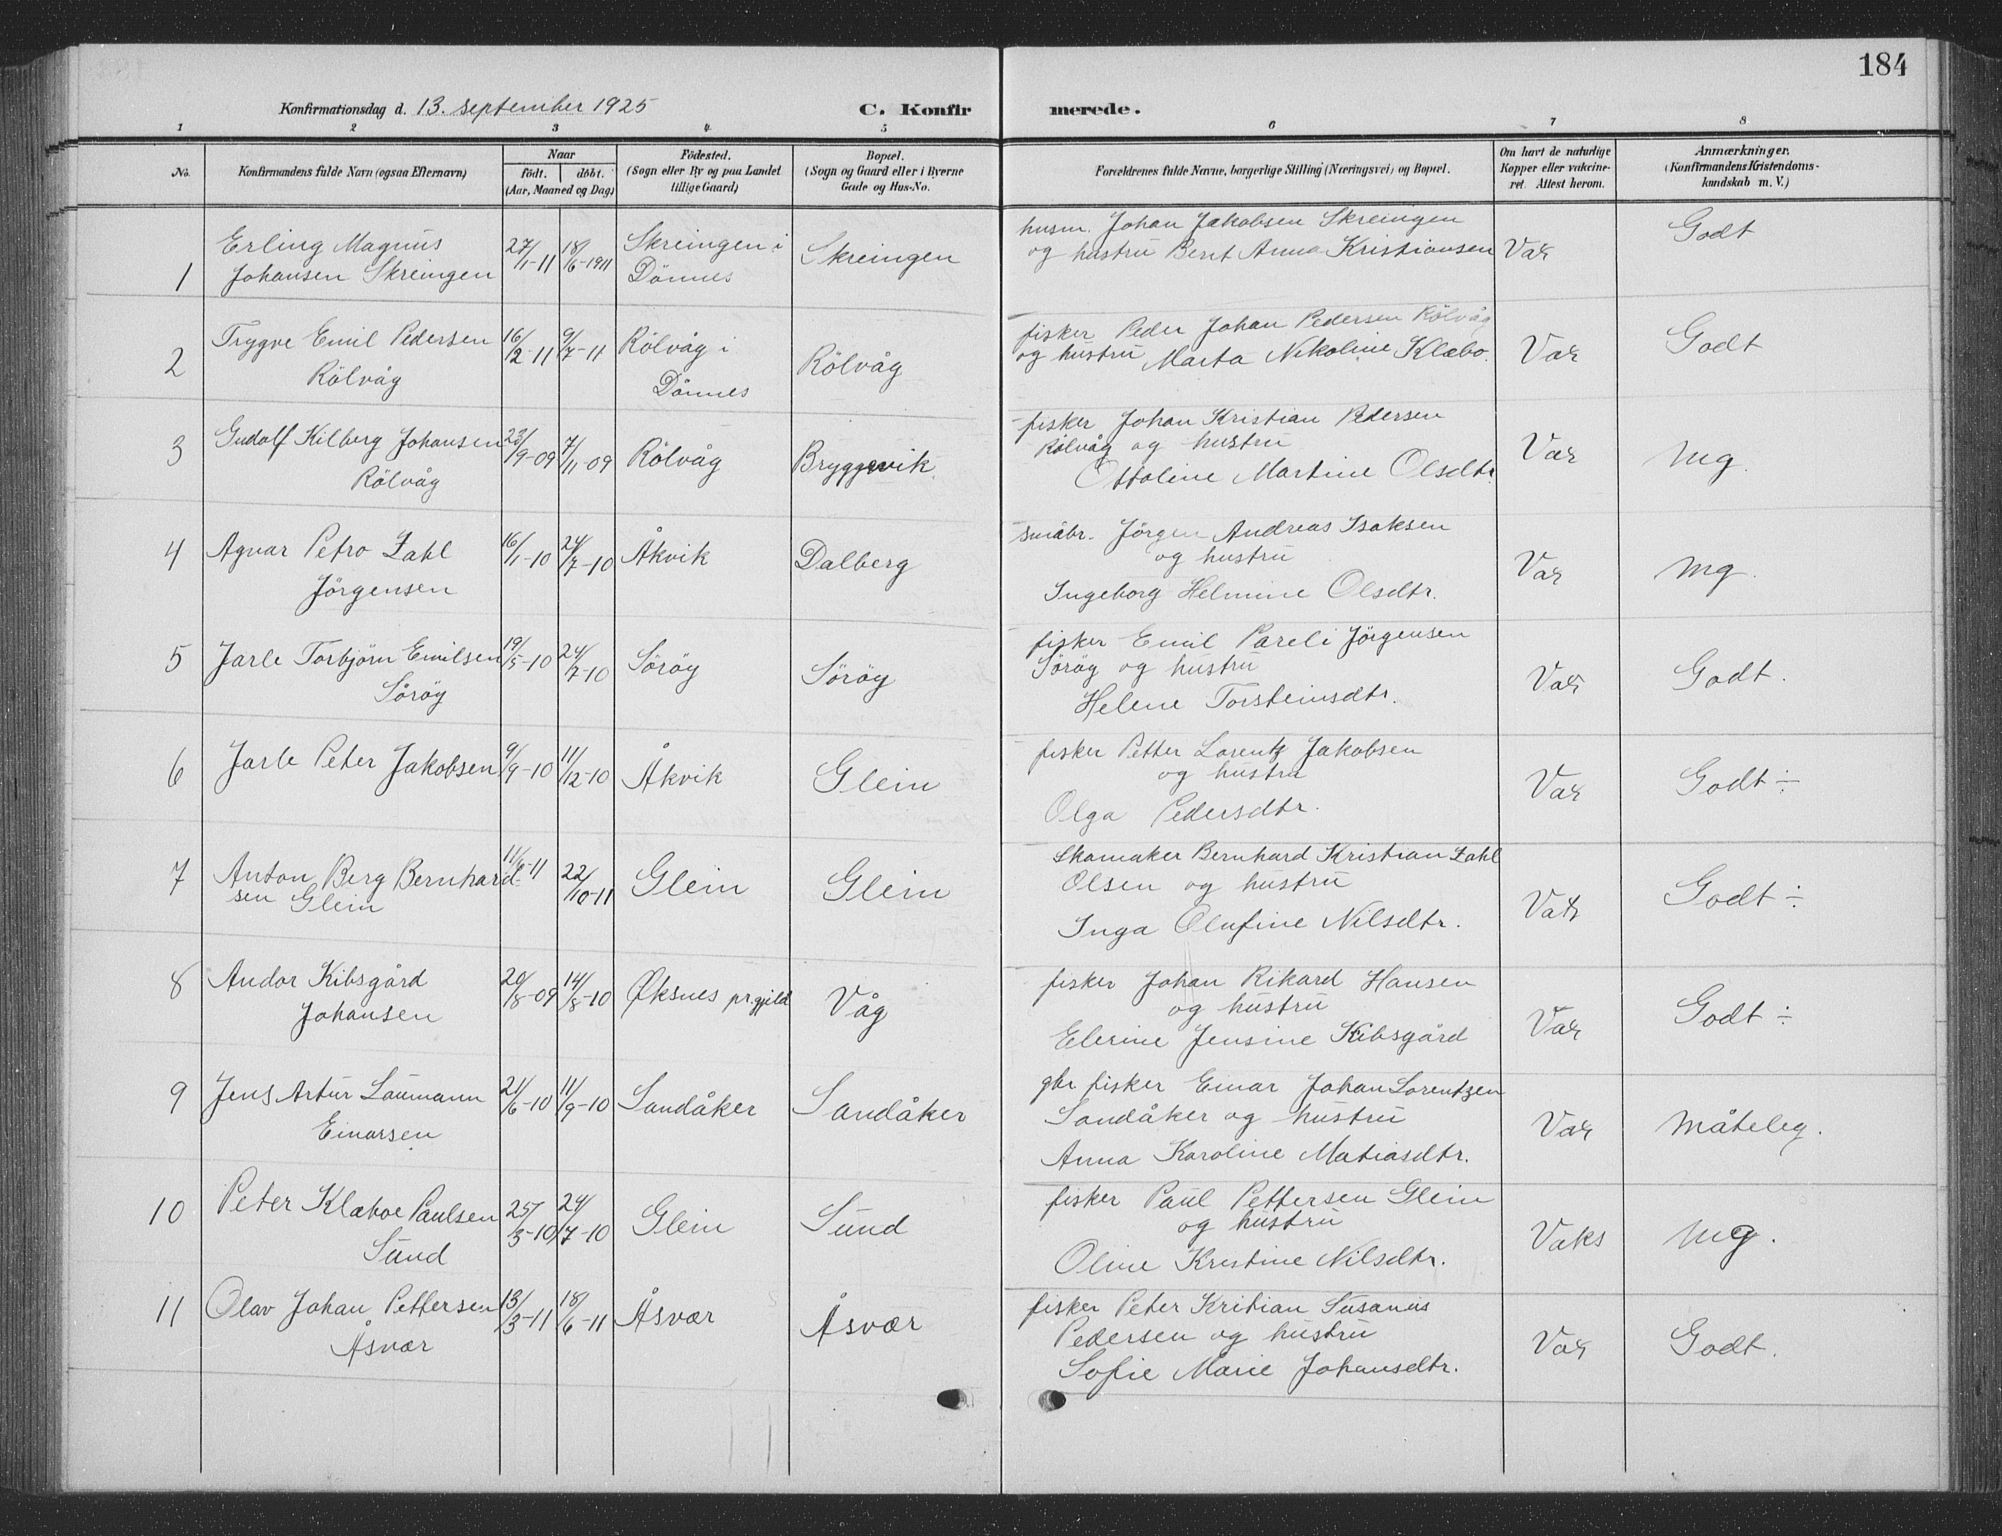 184
Konfirmationsdag d. 13. september 1925 C. Konfir merede.
1 2 3 4 5 6 7 8
No. Konfirmandens fulde Navn (ogsaa Efternavn) Naar födt. döbt. (Aar, Maaned og Dag) Födested. (Sogn eller By og paa Landet tillige Gaard) Bopæl. (Sogn og Gaard eller i Byerne Gade og Hus-No. Forældrenes fulde Navne, borgerlige Stilling (Næringsvei) og Bopæl. Om havt de naturlige Kopper eller vakcineret. Attest herom. Anmærkninger. (Konfirmandens Kristendomskundskab m. V.)
1 Erling Magnus 27/1-11 18/6-1911 Skreingen i Skreingen husm. Johan Jakobsen Skreingen Vax Godt
Johansen Skreingen Dönnes og hustru Berit Anna Kristiansen
2 Trygve Emil Pedersen 16/2-11 9/7-11 Rölvåg i Rölvåg fisker Peder Johan Pedersen Rölvåg Vax Godt
Rölvåg Dönnes og hustru Marta Nikoline Klæbo.
3 Gudolf Kilberg Johansen 23/9-09 7/11-09 Rölvåg Bryggevik. fisker Johan Kristian Pedersen Vax mg.
Rölvåg Rölvåg og hustru
Ottoline Martine Olsdtr.
4 Agnar Petro Zahl 16/1-10 24/7-10 Åkvik Dalberg småbr. Jörgen Andreas Isaksen Vax mg.
Jörgensen og hustru
Ingeborg Helmine Olsdtr.
5 Jarle Torbjörn Emilsen 19/5-10 24/7-10 Söröy Söröy fisker Emil Pareli Jörgensen Vax Godt.
Söröy Söröy og hustru
Helene Torsteinsdtr.
6 Jarle Peter Jakobsen 9/9-10 11/12-10 Åkvik Glein fisker Petter Lorentz Jakobsen Vax Godt ÷
og hustru
Olga Pedersdtr.
7 Anton Berg Bernhard- 11/6-11 22/10-11 Glein Glein skomaker Bernhard Kristian Zahl Vax Godt ÷
sen Glein Olsen og hustru
Inga Olufine Nilsdtr.
8 Andor Kibsgård 20/8-09 14/8-10 Øksnes pr.gjeld Våg fisker Johan Rikard Hansen Vax Godt ÷
Johansen og hustru
Elerine Jensine Kibsgård
9 Jens Artur Laumann 21/6-10 11/9-10 Sandåker Sandåker gbr fisker Einar Johan Lorentzen Vax måteleg.
Einarsen Sandåker og hustru
Anna Karoline Matiasdtr.
10 Peter Klæboe Paulsen 25/3-10 24/7-10 Glein Sund fisker Paul Pettersen Glein Vaks mg.
Sund og hustru
Oline Kristine Nilsdtr.
11 Olav Johan Pettersen 13/3-11 18/6-11 Åsvær Åsvær fisker Peter Kritian Susanus Vax Godt.
Åsvær Pedersen og hustru
Sofie Marie Johansdtr.